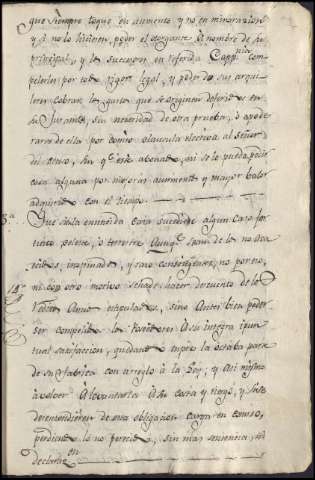 que siempre toque en aumento y no en minorarlos
y si no lo hicieren, poder el otorgante a nombre de su
principal, y los succesores en referida Capp.nia com-
pelerles por todo rigor legal, y poder de sus arqui
leres cobrar los gastos que se originen deferido en
su Juramto, sin necesidad de otra prueba, o apode
rarse de ella por comiso clausula electiva al Señor
del suso, sin qe este abonare, ni se le pueda pedir
cosa alguna por mejoras aumentos y mayor valor
adquirido con el tiempo
8.a Que si a la enunciada Casa sucediese algun caso for
tuito celeste, o terrestre Aunqe sean de los no Aca
ecidos, inopinados, y raro contingentes, no por eso,
ni con otro motivo se ha de hacer descuento de los
Reditos Anuos estipulados, sino Antes bien poder
ser compelidos los Poseedores A su integra i pun
tual satisfaccion, quedando siempre la octaba parte
de su fabrica con arreglo a la Ley; y Asi mismo
a volver A levantarla A su costa y riesgo, y si se
desentendieren de esta obligacion caiga en comiso,
perdiendo lo no perecido, sin mas sentencia, ni
declaracion